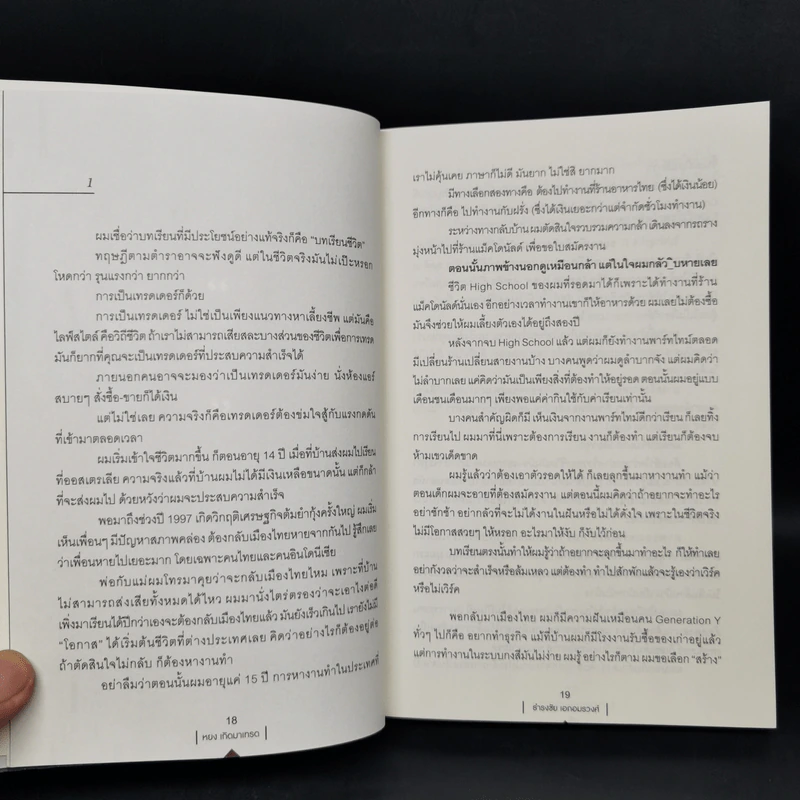 1
ผมเชื่อว่าบทเรียนที่มีประโยชน์อย่างแท้จริงก็คือ “บทเรียนชีวิต”
ทฤษฎีตามตำราอาจจะฟังดูดี แต่ในชีวิตจริงมันไม่เป๊ะหรอก
โหดกว่า รุนแรงกว่า ยากกว่า
การเป็นเทรดเดอร์ก็ด้วย
การเป็นเทรดเดอร์ ไม่ใช่เป็นเพียงแนวทางหาเลี้ยงชีพ แต่มันคือ
ไลฟ์สไตล์ คือวิถีชีวิต ถ้าเราไม่สามารถเสียสละบางส่วนของชีวิตเพื่อการเทรด
มันก็ยากที่คุณจะเป็นเทรดเดอร์ที่ประสบความสำเร็จได้
ภายนอกคนอาจจะมองว่าเป็นเทรดเดอร์มันง่าย นั่งห้องแอร์
สบายๆ สั่งซื้อ-ขายก็ได้เงิน
แต่ไม่ใช่เลย ความจริงก็คือเทรดเดอร์ต้องข่มใจสู้กับแรงกดดัน
ที่เข้ามาตลอดเวลา
ผมเริ่มเข้าใจชีวิตมากขึ้น ก็ตอนอายุ 14 ปี เมื่อที่บ้านส่งผมไปเรียน
ที่ออสเตรเลีย ความจริงแล้วที่บ้านผมไม่ได้มีเงินเหลือขนาดนั้น แต่ก็กล้า
ที่จะส่งผมไป ด้วยหวังว่าผมจะประสบความสำเร็จ
พอมาถึงช่วงปี 1997 เกิดวิกฤติเศรษฐกิจต้มยำกุ้งครั้งใหญ่ ผมเริ่ม
เห็นเพื่อนๆ มีปัญหาสภาพคล่อง ต้องกลับเมืองไทยหายจากกันไป รู้สึกเลย
ว่าเพื่อนหายไปเยอะมาก โดยเฉพาะคนไทยและคนอินโดนีเซีย
พ่อกับแม่ผมโทรมาคุยว่าจะกลับเมืองไทยไหม เพราะที่บ้าน
ไม่สามารถส่งเสียทั้งหมดได้ไหว ผมมานั่งไตร่ตรองว่าจะเอาไงต่อดี
เพิ่งมาเรียนได้ปีกว่าเองจะต้องกลับเมืองไทยแล้ว มันยังเร็วเกินไป เรายังไม่มี
“โอกาส” ได้เริ่มต้นชีวิตที่ต่างประเทศเลย คิดว่าอย่างไรก็ต้องอยู่ต่อ
ถ้าตัดสินใจไม่กลับ ก็ต้องหางานทำ
อย่าลืมว่าตอนนั้นผมอายุแค่ 15 ปี การหางานทำในประเทศที่
18
หยง เกิดมาเทรด
เราไม่คุ้นเคย ภาษาก็ไม่ดี มันยาก ไม่ใช่สิ ยากมาก
มีทางเลือกสองทางคือ ต้องไปทำงานที่ร้านอาหารไทย (ซึ่งได้เงินน้อย)
อีกทางก็คือ ไปทำงานกับฝรั่ง (ซึ่งได้เงินเยอะกว่าแต่จำกัดชั่วโมงทำงาน)
ระหว่างทางกลับบ้าน ผมตัดสินใจรวบรวมความกล้า เดินลงจากรถราง
มุ่งหน้าไปที่ร้านแม็คโดนัลด์ เพื่อขอใบสมัครงาน
ตอนนั้นภาพข้างนอกดูเหมือนกล้า แต่ในใจผมกลัว บหายเลย
ชีวิต High School ของผมที่รอดมาได้ก็เพราะได้ทำงานที่ร้าน
แม็คโดนัลด์นั่นเอง อีกอย่างเวลาทำงานเขาก็ให้อาหารด้วย ผมเลยไม่ต้องซื้อ
มันจึงช่วยให้ผมเลี้ยงตัวเองได้อยู่ถึงสองปี
หลังจากจบ High School แล้ว แต่ผมก็ยังทำงานพาร์ทไทม์ตลอด
มีเปลี่ยนร้านเปลี่ยนสายงานบ้าง บางคนพูดว่าผมดูลำบากจัง แต่ผมคิดว่า
ไม่ลำบากเลย แค่คิดว่ามันเป็นเพียงสิ่งที่ต้องทำให้อยู่รอด ตอนนั้นผมอยู่แบบ
เดือนชนเดือนมากๆ เพียงพอแค่ค่ากินใช้กับค่าเรียนเท่านั้น
บางคนสำคัญผิดก็มี เห็นเงินจากงานพาร์ทไทม์ดีกว่าเรียน ก็เลยทิ้ง
การเรียนไป ผมมาที่นี่เพราะต้องการเรียน งานก็ต้องทำ แต่เรียนก็ต้องจบ
ห้ามเขวเด็ดขาด
ผมรู้แล้วว่าต้องเอาตัวรอดให้ได้ ก็เลยลุกขึ้นมาหางานทำ แม้ว่า
ตอนเด็กผมจะอายที่ต้องสมัครงาน แต่ตอนนี้ผมคิดว่าถ้าอยากจะทำอะไร
อย่าชักช้า อย่ากลัวที่จะไม่ได้งานในฝันหรือไม่ได้ดั่งใจ เพราะในชีวิตจริง
ไม่มีโอกาสสวยๆ ให้หรอก อะไรมาให้งับ ก็งับไว้ก่อน
บทเรียนตรงนั้นทำให้ผมรู้ว่าถ้าอยากจะลุกขึ้นมาทำอะไร ก็ให้ทำเลย
อย่ากังวลว่าจะสำเร็จหรือล้มเหลว แต่ต้องทำ ทำไปสักพักแล้วจะรู้เองว่าเวิร์ค
หรือไม่เวิร์ค
พอกลับมาเมืองไทย ผมก็มีความฝันเหมือนคน Generation Y
ทั่วๆ ไปก็คือ อยากทำธุรกิจ แม้ที่บ้านผมก็มีโรงงานรับซื้อของเก่าอยู่แล้ว
แต่การทำงานในระบบกงสีมันไม่ง่าย ผมรู้ อย่างไรก็ตาม ผมขอเลือก “สร้าง”
19
ธำรงชัย เอกอมรวงศ์